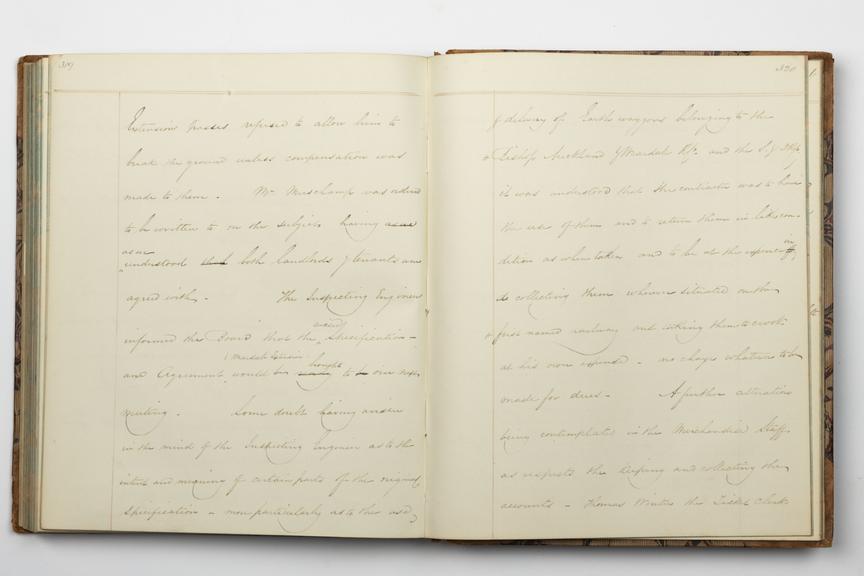 319
Extension passes refused to allow him to
break the ground unless compensation was
made to them. Mr Muschamp was ordered
to be written to on the subject, having
as we
understood both landlords & tenants are
agreed with. The Inspecting Engineer
informed the Board that the Specification
and Agreement would be brought to our next
meeting. Some doubt having arisen
in the mind of the Inspecting Engineer as to the
intent and meaning of certain parts of the original
Specification – more particularly as to the use
320
& delivery of Earth waggons belonging to the
Bishop Auckland & Weardale Ry. and the
it was understood that the contractor was to have
the use of them and to return them in like con-
dition as when taken and to be at the expence
in
collecting them wherever situated on the
first named railway and taking them to Crook
at his own expense – no charge whatever to be
made for dues – A further alteration
being contemplated in the Merchandise Staff
as respects the keeping and collecting the
accounts – Thomas Winter the Ticket Clerk